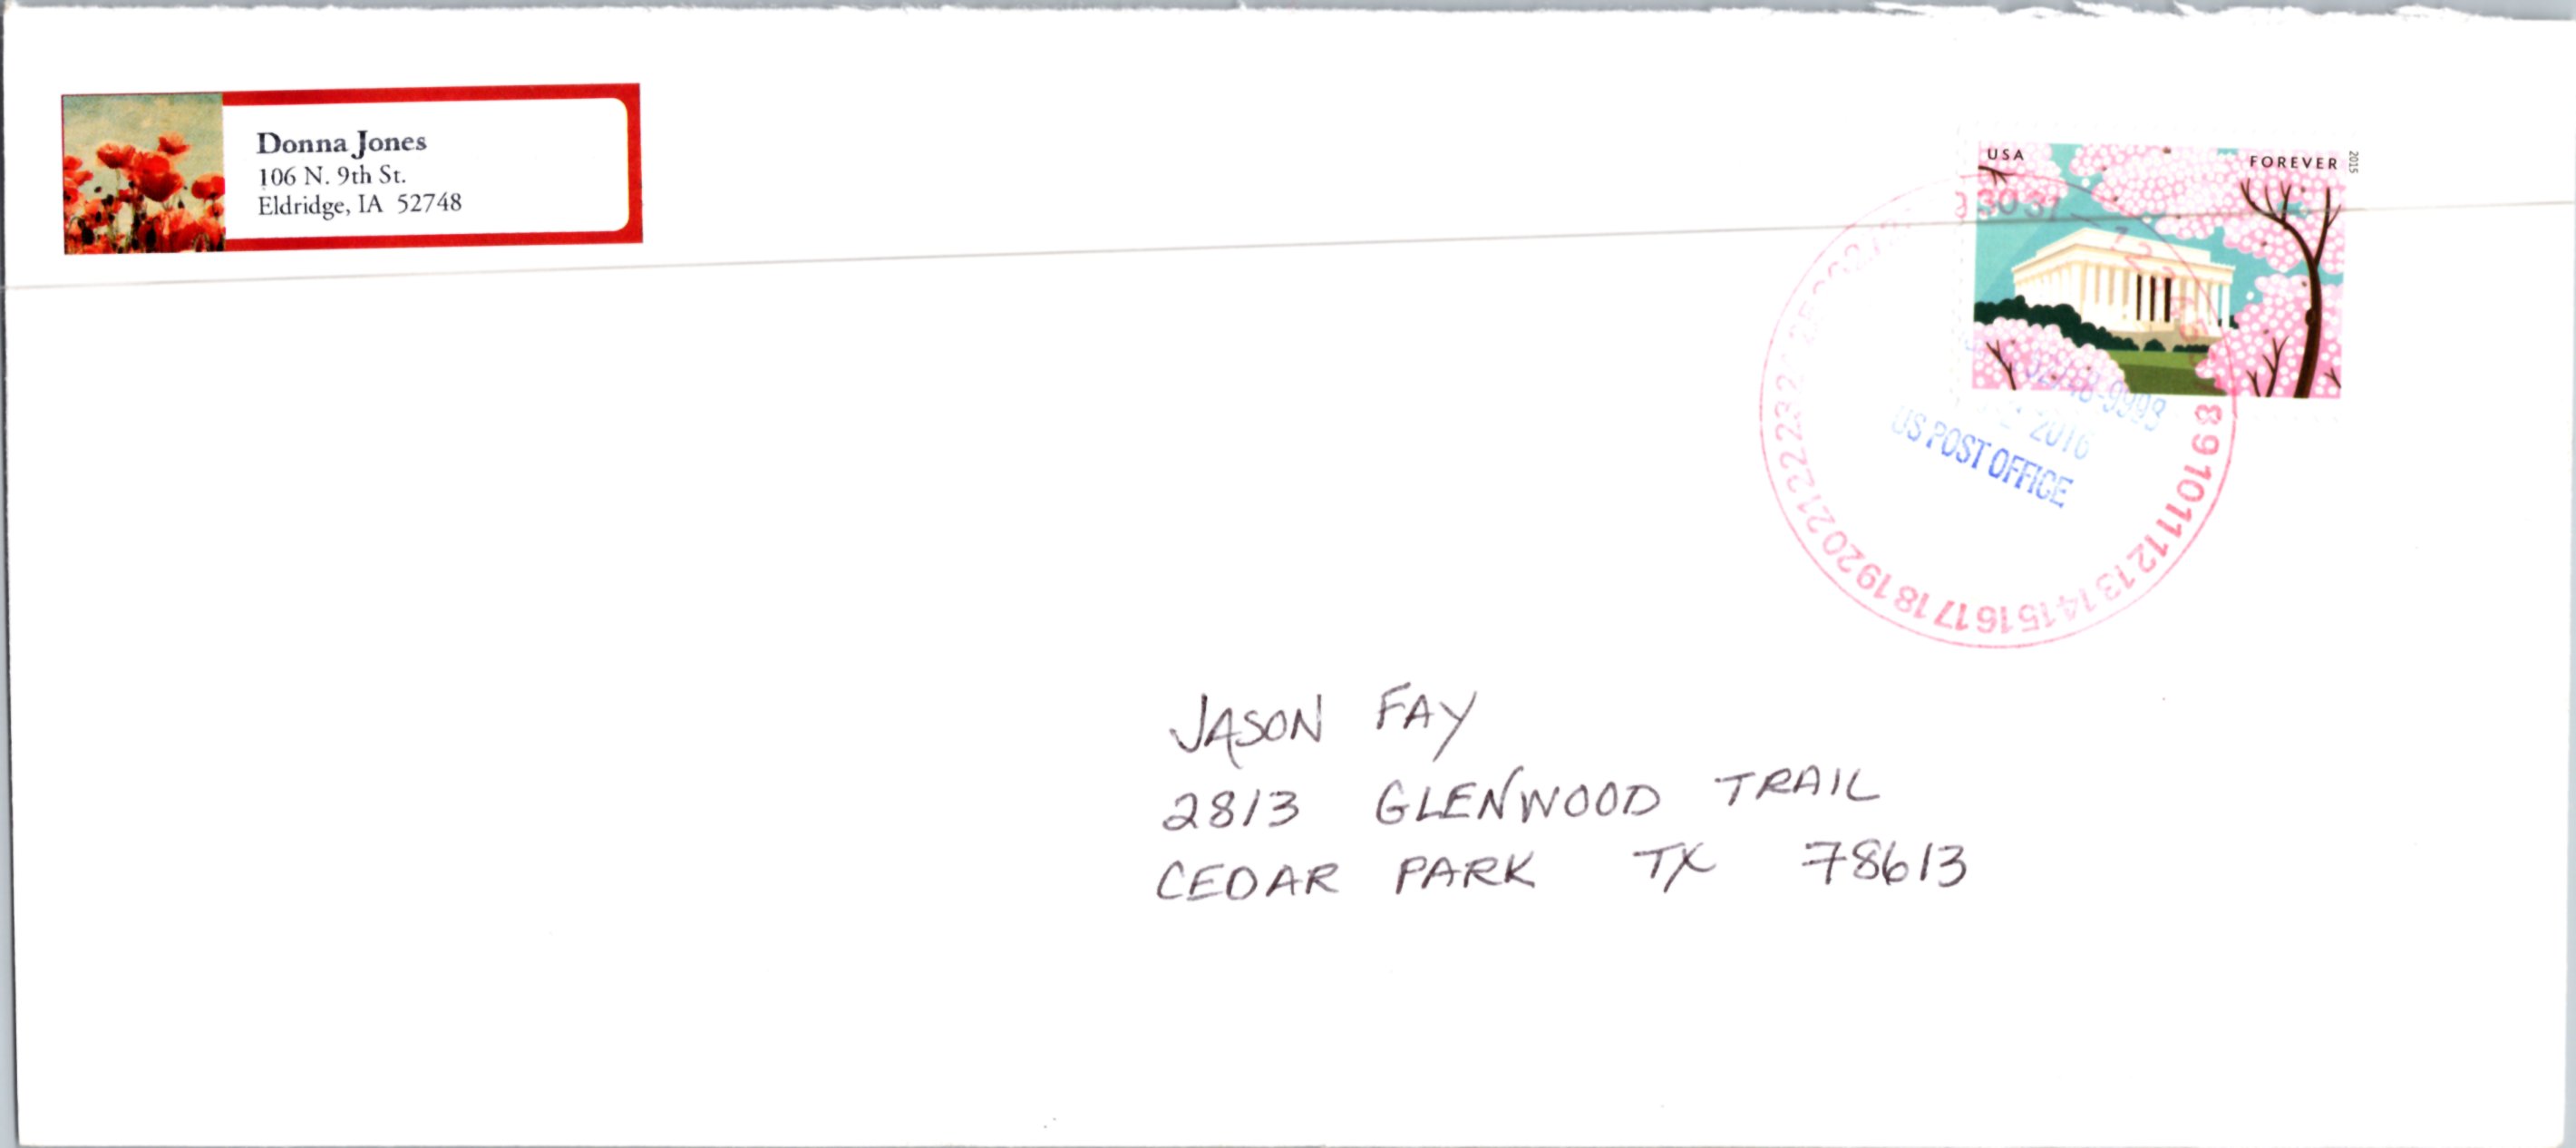 Donna Jones
106 N. 9th St.
Eldridge, IA 52748
USA
FOREVER
2015
30 31
8 9 10 11 12 13 14 15 16 17 18 19 20 21 22 23
2016
US POST OFFICE
JASON FAY
2813 GLENWOOD TRAIL
CEDAR PARK TX 78613